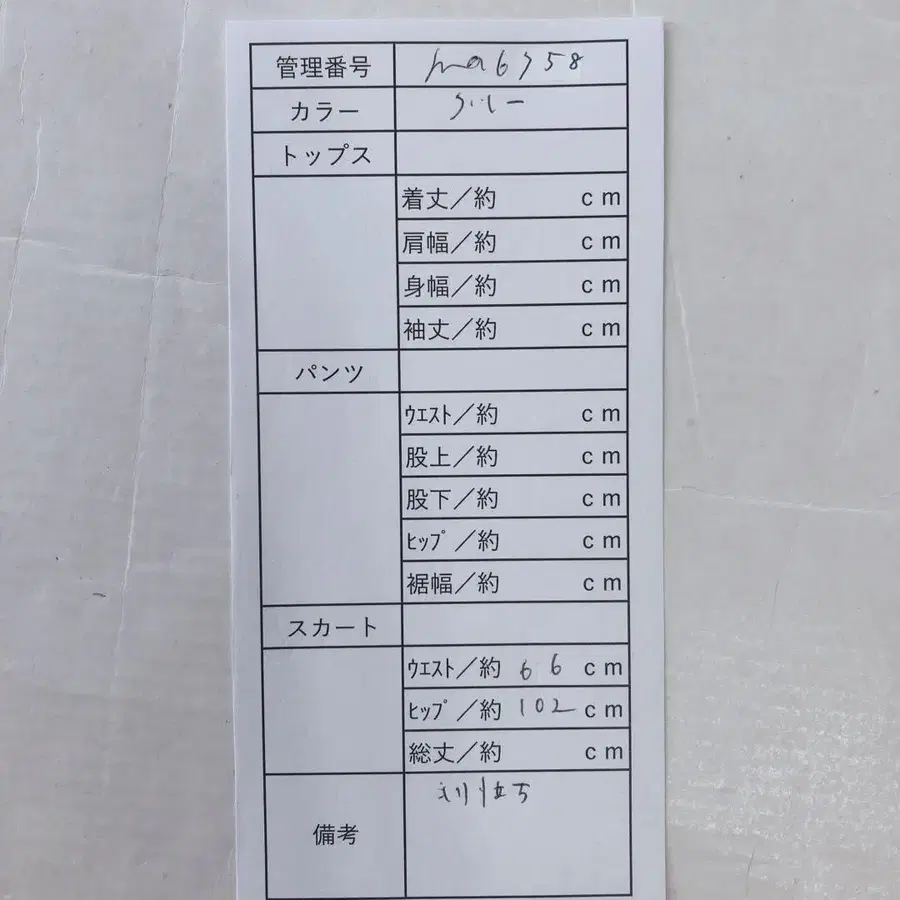 管理番号 ma6758
カラー グレー
トップス
着丈／約 cm
肩幅／約 cm
身幅／約 cm
袖丈／約 cm
パンツ
ｳｴｽﾄ／約 cm
股上／約 cm
股下／約 cm
ﾋｯﾌﾟ／約 cm
裾幅／約 cm
スカート
ｳｴｽﾄ／約 66 cm
ﾋｯﾌﾟ／約 102 cm
総丈／約 cm
備考